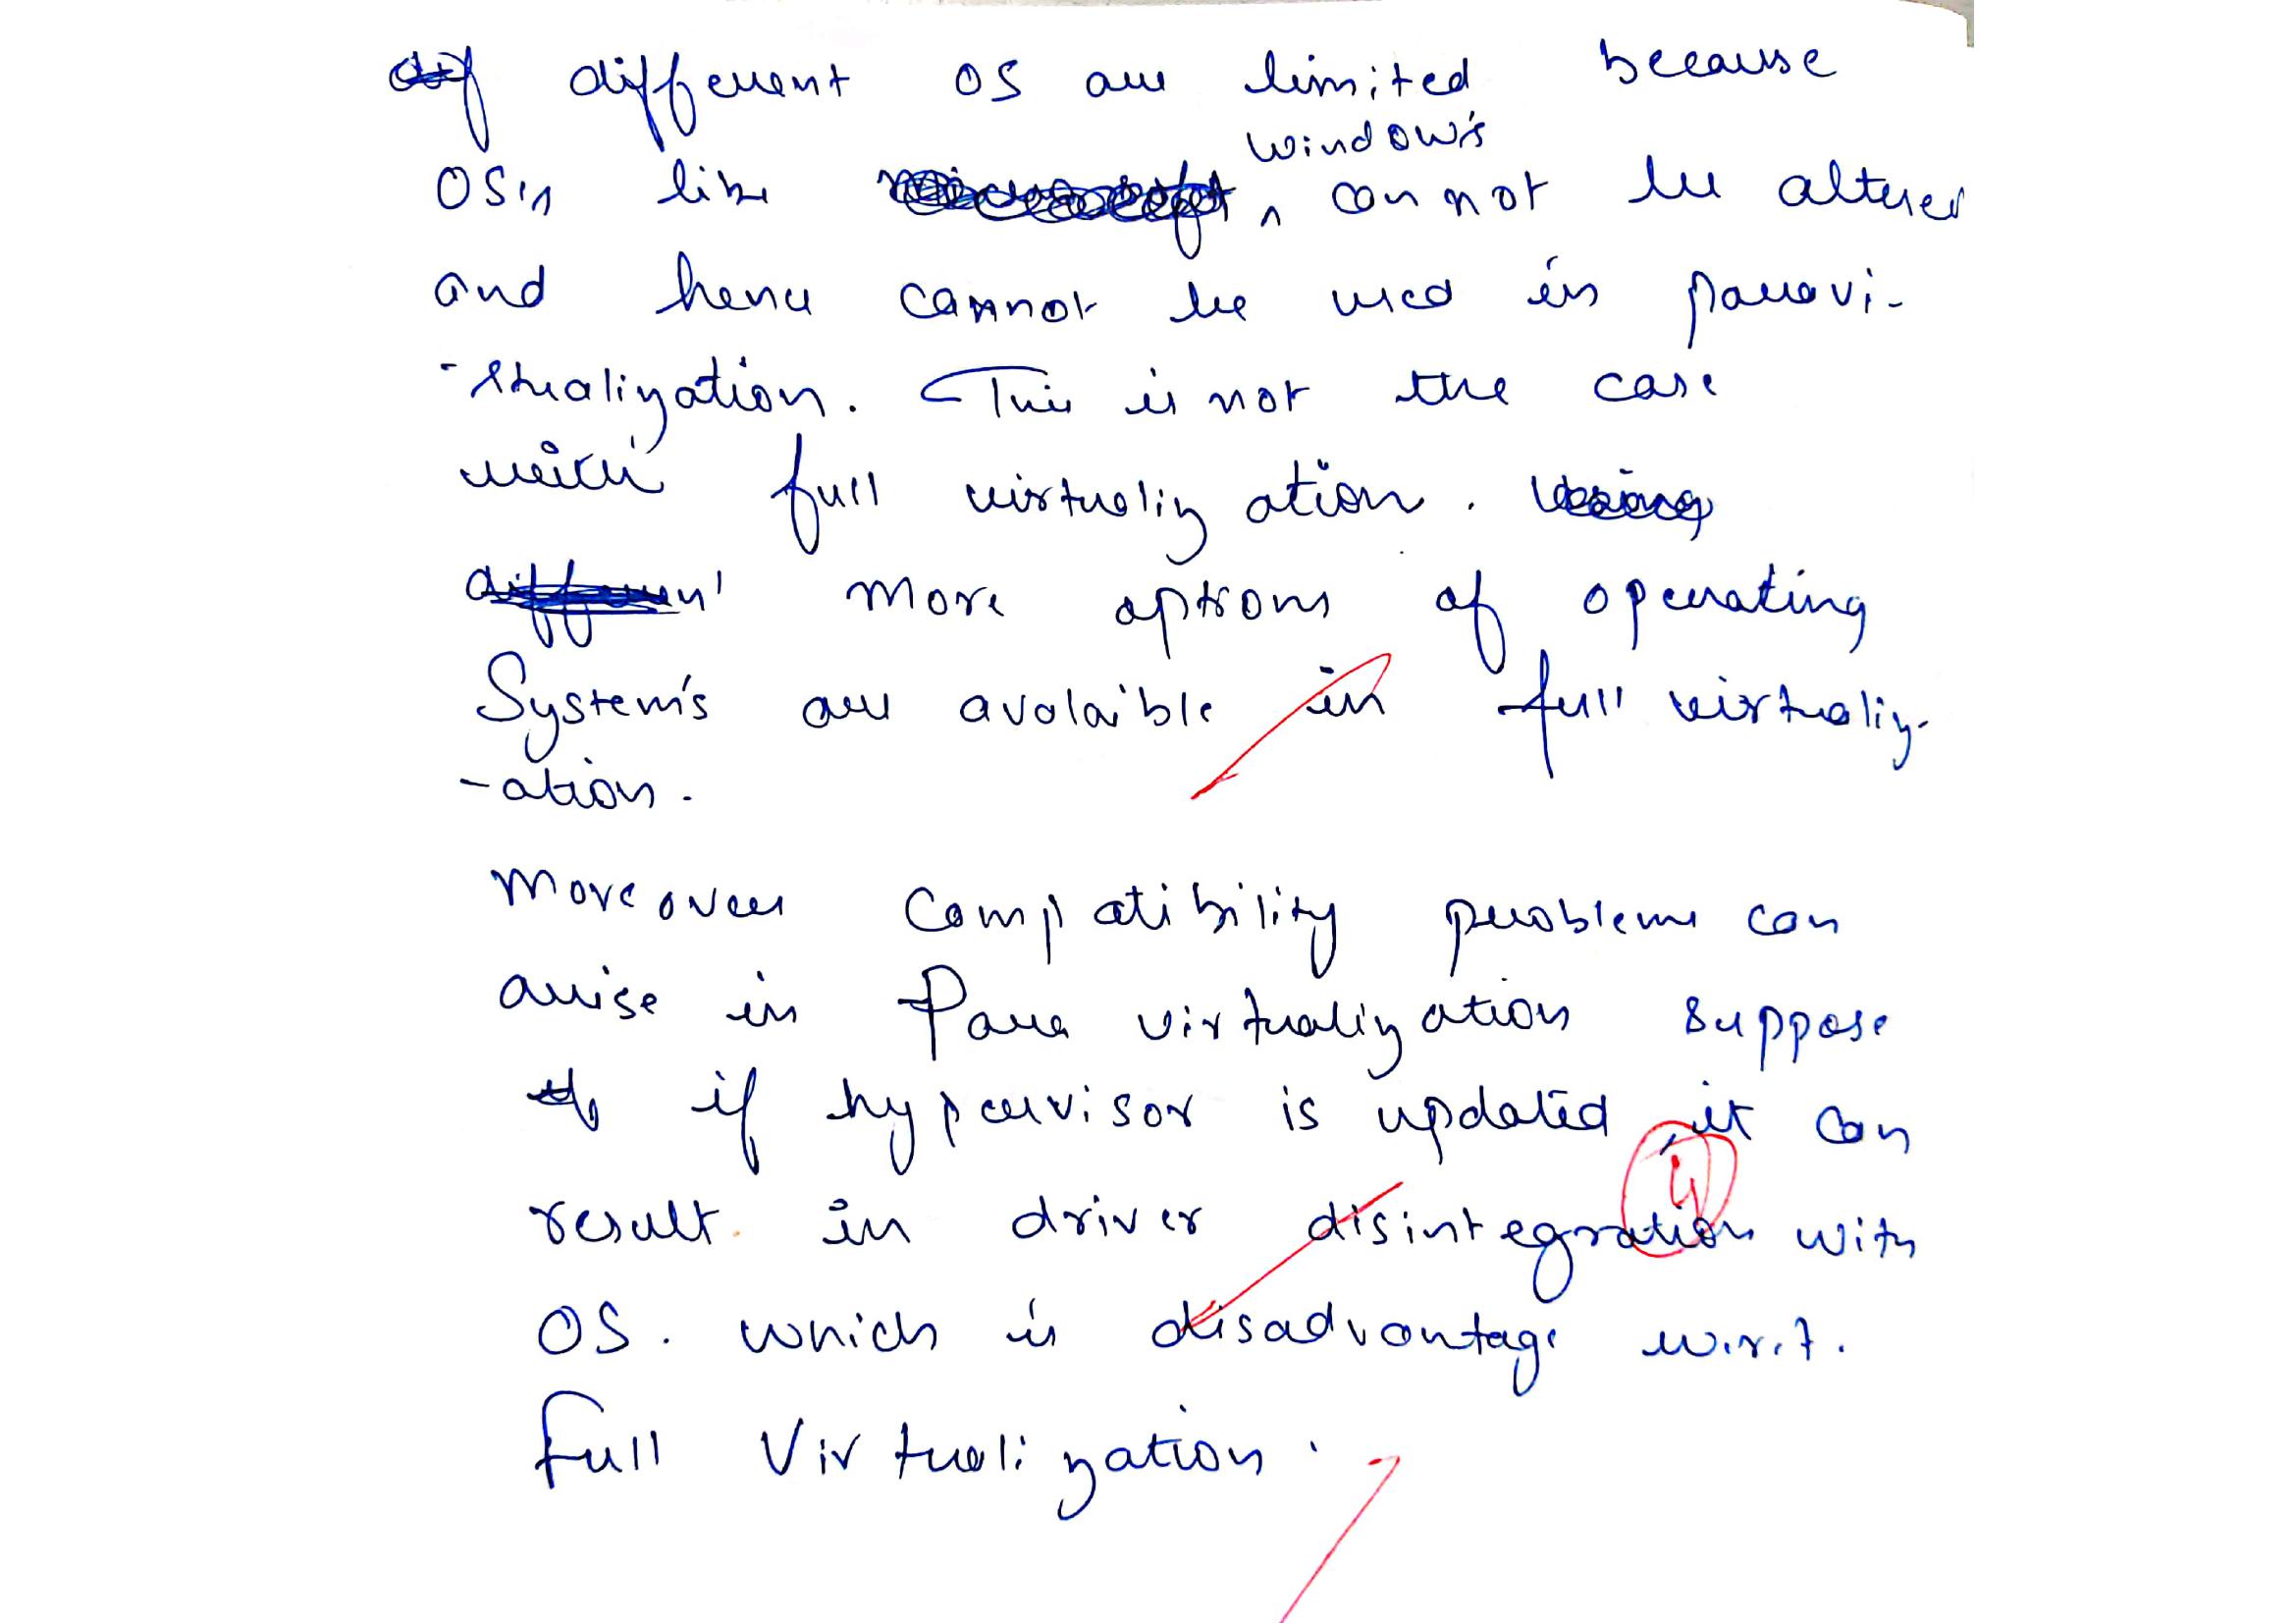 different OS are limited because
OS's like windows cannot be altered
and hence cannot be used in paravi-
-rtualization. This is not the case
with full virtualization.
More options of operating
System's are avalaible in full virtualiz-
-ation.
Moreover Compatibility problems can
arise in Para virtualization suppose
if hypervisor is updated, it can
result in driver disintegration with
OS. which is disadvantage w.r.t.
Full Virtualization.